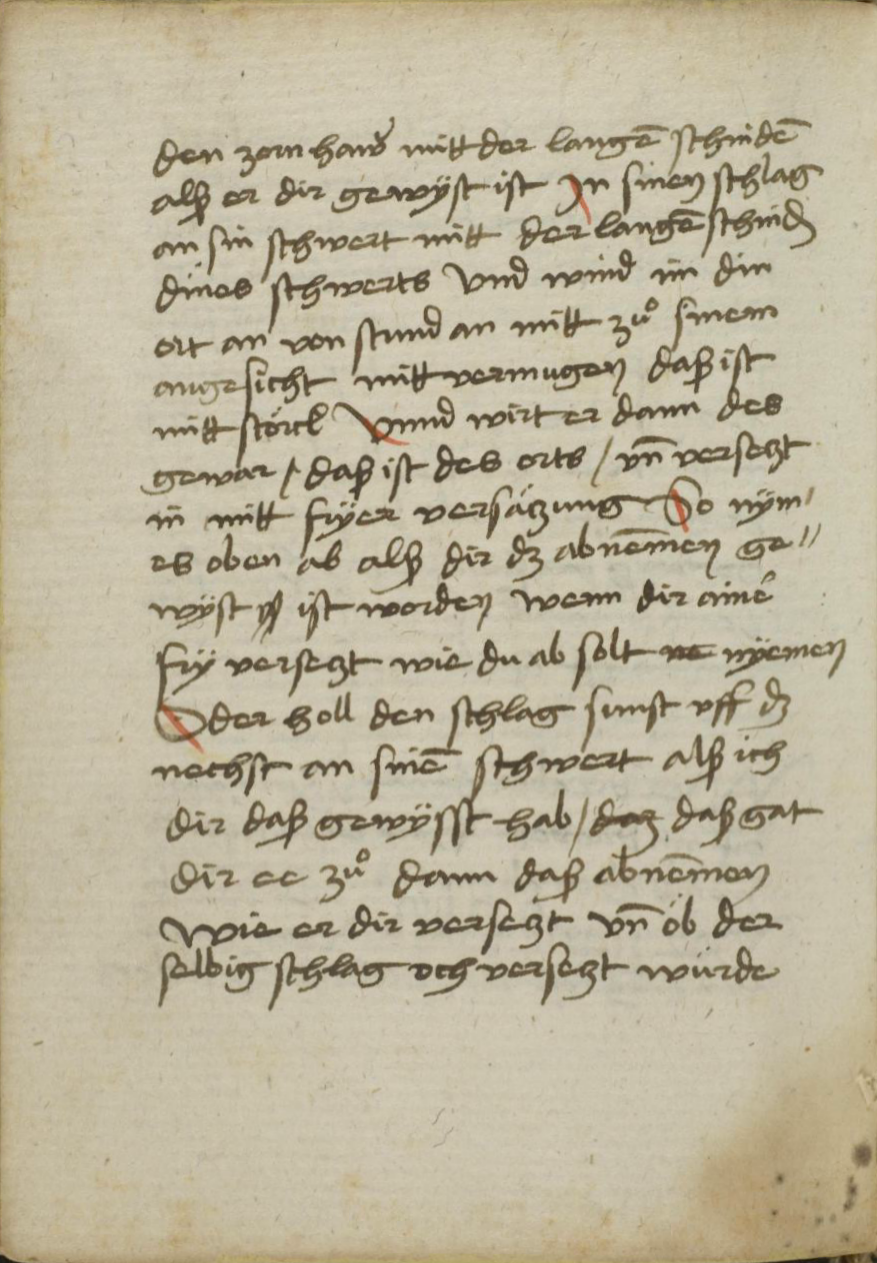 den zorn haw̃ mitt der langē schnidē
alß er dir gewÿst ist In sinen schlag
an sin schwert mitt der langē schnidṇ
dines schwerts Vnd wind im din
ort an von stund an mitt zů sinem
angesicht mitt vermugen daß ist
mitt störck Vnnd wirt er dann des
gewar / daß ist des orts / vn̄ versetzt
in mitt frÿer versåtzung So nÿm
es oben ab alß dir dz abnem̄en ge〃
wÿst ist worden wenn dir ainē
frÿ versetzt wie du ab solt nÿemen
Oder holl den schlag sunst vff dz
nechst an sinē schwert alß ich
dir daß gewÿsst hab / daz daß gat
dir ee zů dann daß abnem̄en
Wie er dir versetzt vn̄ ob der
selbig schlag och versetzt wurde